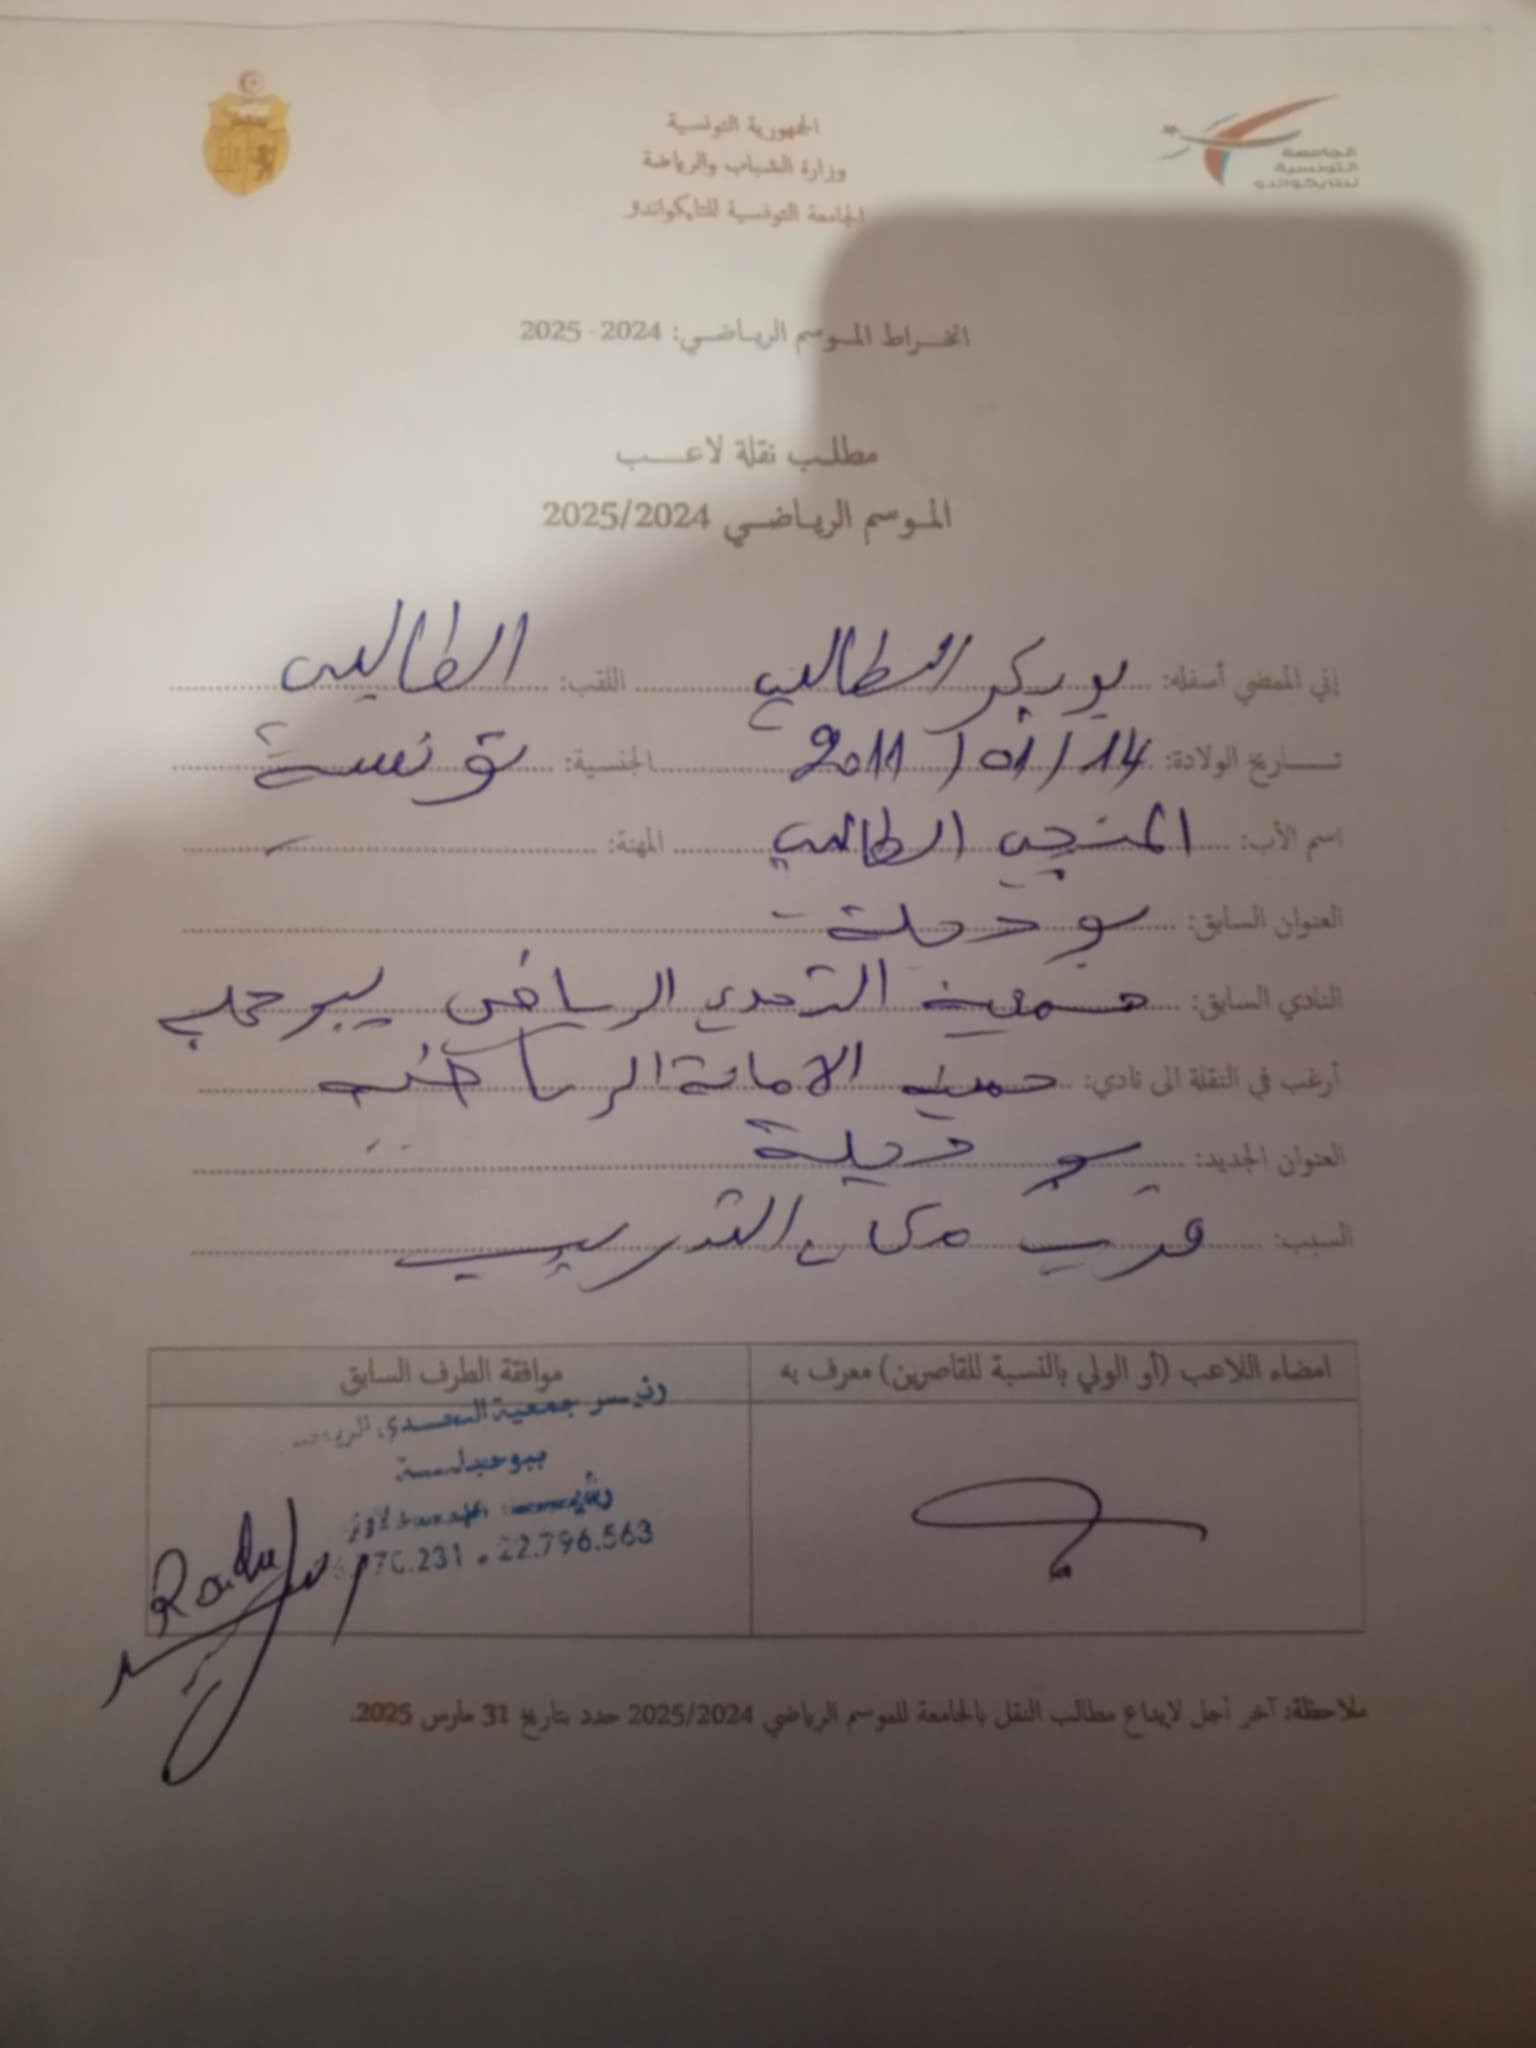 الجمهورية التونسية
وزارة الشباب والرياضة
الجامعة التونسية للتايكواندو
الجامعة
التونسية
للتايكواندو
انخراط الموسم الرياضي: 2024- 2025
مطلب نقلة لاعب
الموسم الرياضي 2025/2024
إني الممضي أسفله: بوبكر الطالبي اللقب: الطالبي
تاريخ الولادة: 14/01/2011 الجنسية: تونسية
اسم الأب: المنجي الطالبي المهنة: -
العنوان السابق: بوحجلة
النادي السابق: جمعية التحدي الرياضي ببوحجلة
أرغب في النقلة الى نادي: جمعية الامانة الرياضية
العنوان الجديد: بوحجلة
السبب: قرب مكان التدريب
امضاء اللاعب (أو الولي بالنسبة للقاصرين) معرف به
موافقة الطرف السابق
رئيس جمعية التحدي الرياضي
ببوحجلة
70.231 - 22.796.563
ملاحظة: آخر أجل لإيداع مطالب النقل بالجامعة للموسم الرياضي 2025/2024 حدد بتاريخ 31 مارس 2025.